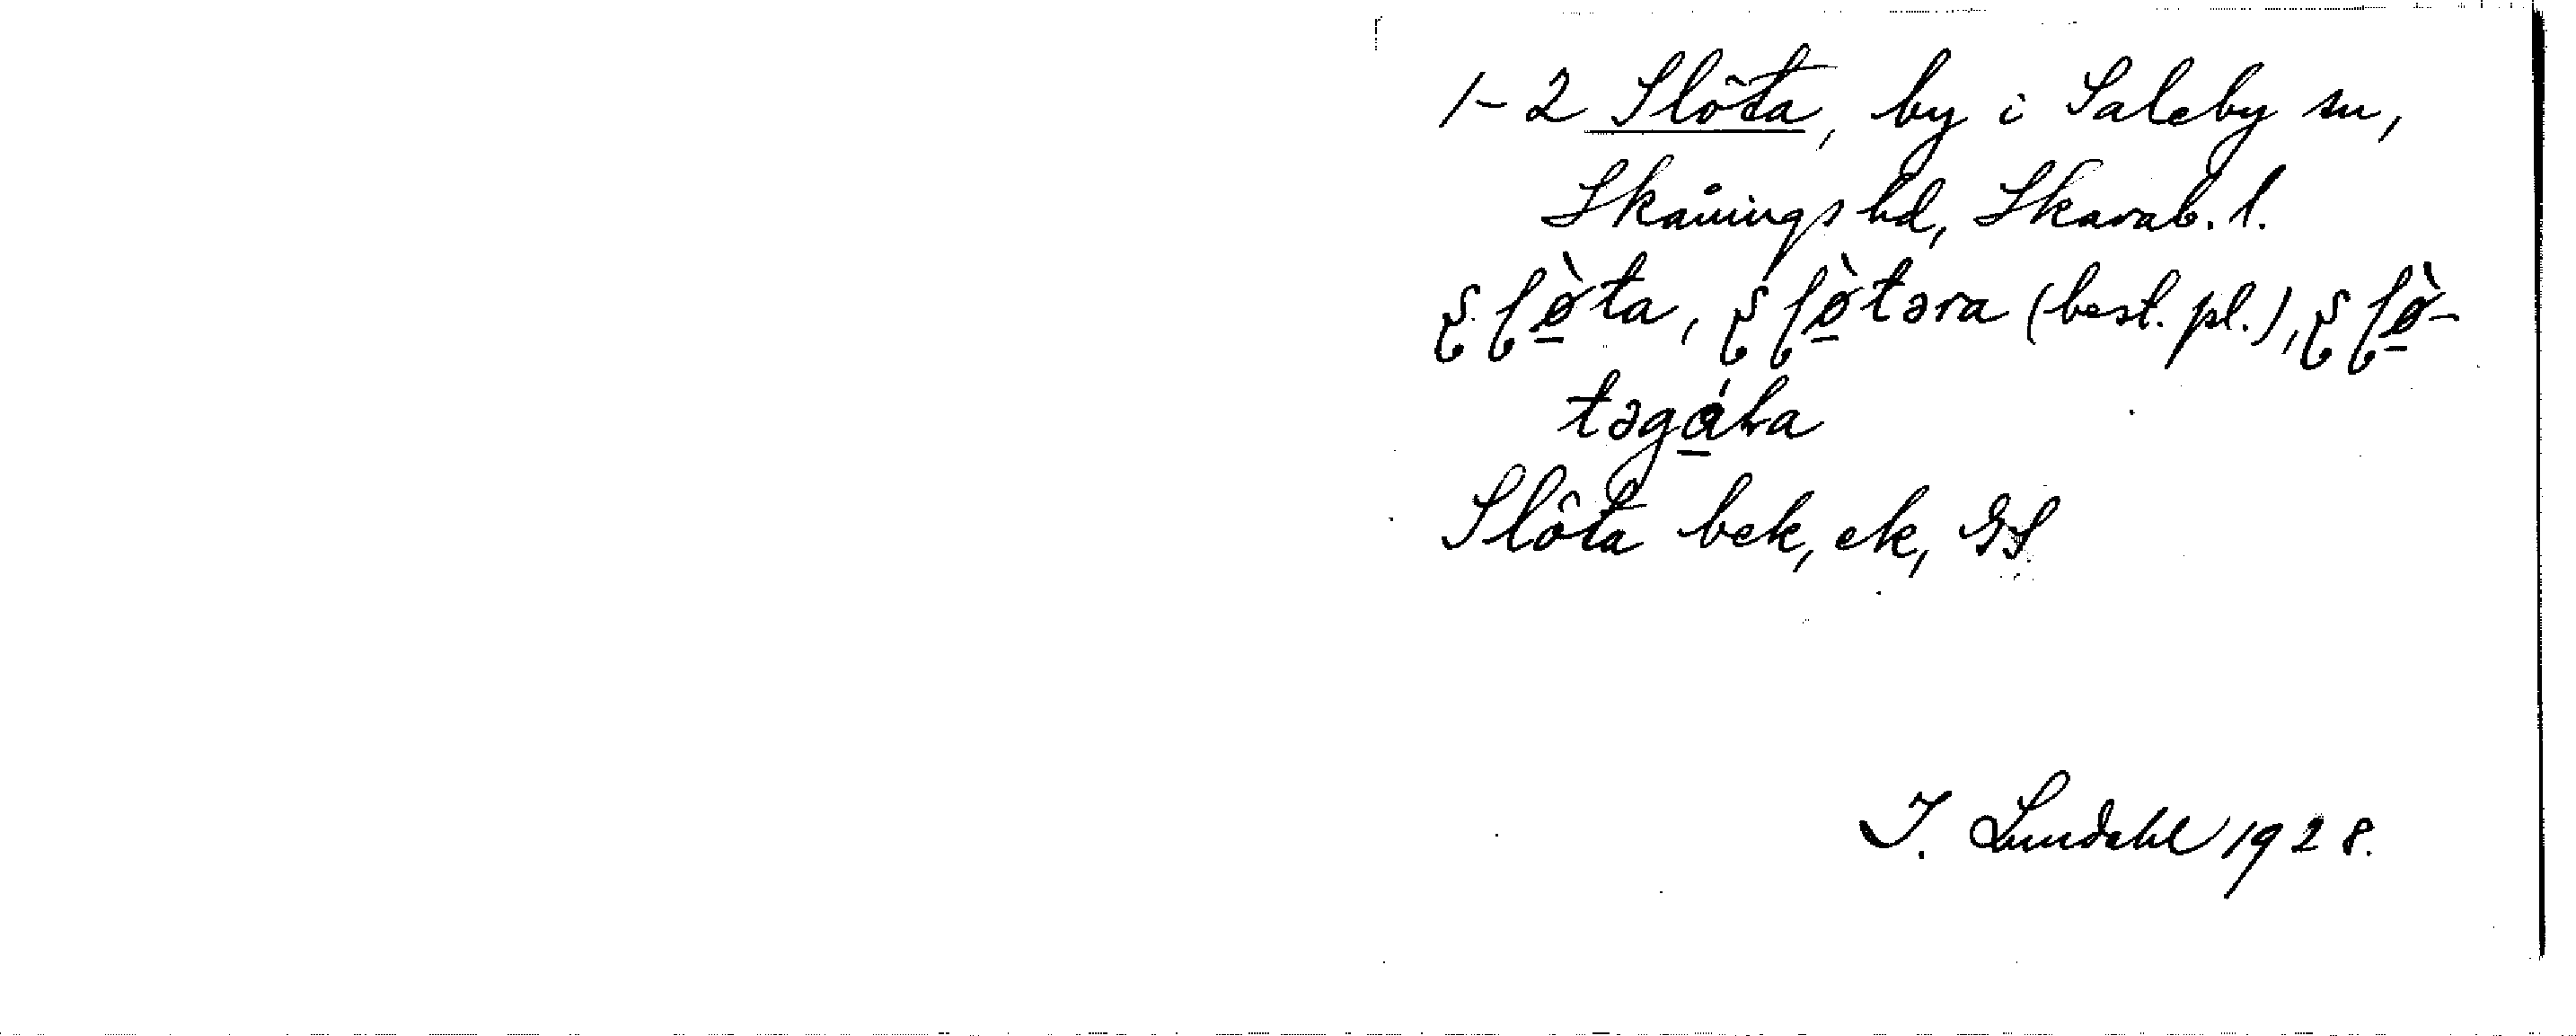 1-2 Slöta, by i Saleby sn,
Skånings hd, Skarab. l.
ʂɭø̀ta, ʂɭø̀təra (best. pl.), ʂɭø̀-
təgáka
Slöta bek, ek, GS
I. Lundahl 1928.